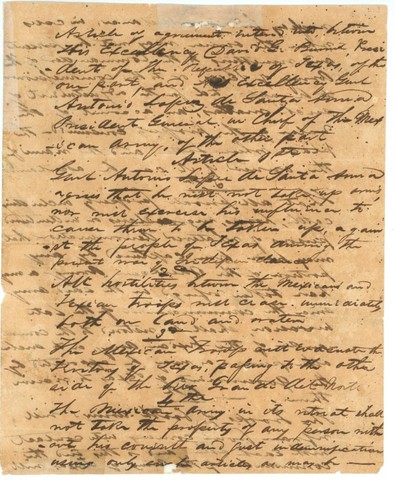 Article of agreement entered into between
His Excellency David G. Burnet Presi
dent of the Republic of Texas, of the
one part, and His Excellency Genl
Antonio Lopez de Santa Anna
President General in Chief of the Mex
ican army, of the other part
Article 1st
Genl Antonio Lopez de Santa Anna
agrees that he will not take up arms
nor will exercise his influence to
cause them to be taken up, again
st the people of Texas during the
present war of
2
All hostilities between the Mexican and
Texian troops will cease immediately
both on land and water
3d
The Mexican Troops will evacuate the
Territory of Texas, passing to the other
side of the Rio Grande del Norte
4th
The Mexican Army in its retreat shall
not take the property of any person with
out his consent and just indemnification
using only such articles as